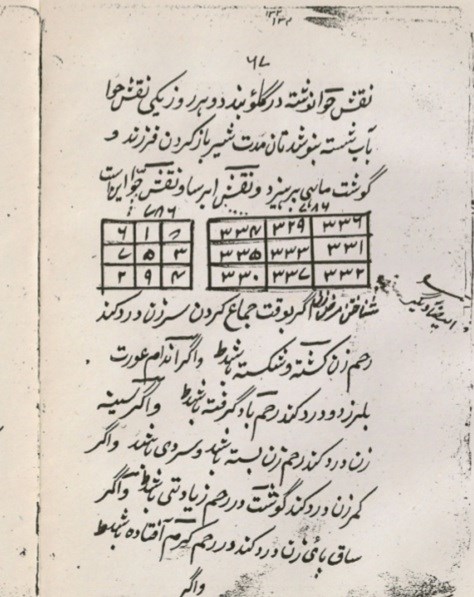 ۶۷
نقش حوا نوشته در گلو بندد و هر روز یکی نقش حوا
بآب شسته بنوشد تا آن مدت شیر باز کردن فرزند و
گوشت ماهی بپرهیزد و نقش ابرسا و نقش حوا این است
۷۸۶ ۷۸۶
۳۳۶ ۳۲۹ ۳۳۴ ۸ ۱ ۶
۳۳۱ ۳۳۳ ۳۳۵ ۳ ۵ ۷
۳۳۲ ۳۳۷ ۳۳۰ ۴ ۹ ۲
شناختن مرض زن اگر بوقت جماع کردن سر زن درد کند
رحم زن گشته و شکسته باشد واگر اندام عورت
بلرزد و درد کند رحم باد گرفته باشد واگر سینه
زن درد کند رحم زن بسته باشد و سردی باشد واگر
کمر زن درد کند گوشت در رحم زیادتی باشد واگر
ساق پای زن درد کند در رحم کرم افتاده باشد
واگر